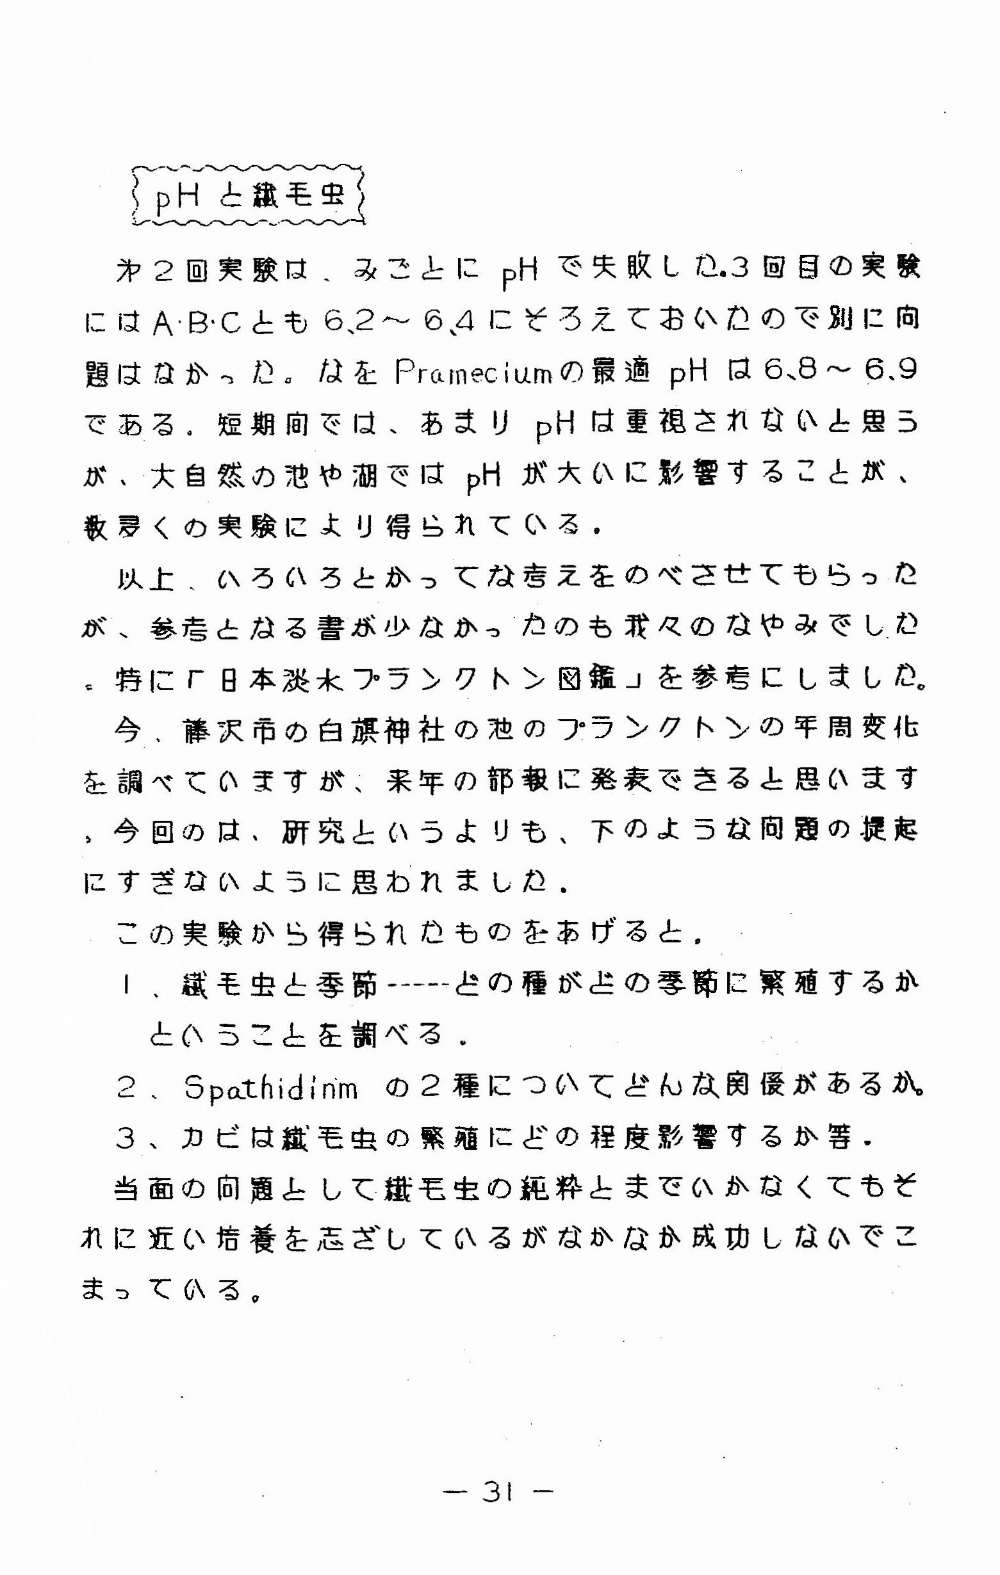 pHと繊毛虫
オ2回実験は、みごとにpHで失敗した.3回目の実験
にはA・B・Cとも6、2〜6、4にそろえておいたので別に问
題はなかった。なをPrameciumの最適pHは6、8〜6、9
である.短期间では、あまりpHは重視されないと思う
が、大自然の池や湖ではpHが大いに影響することが、
数多くの実験により得られている.
以上、いろいろとかってな考えをのべさせてもらった
が、参考となる書が少なかったのも我々のなやみでした
。特に「日本淡水プランクトン図鑑」を参考にしました。
今、藤沢市の白旗神社の池のプランクトンの年周変化
を調べていますが、来年の部報に発表できると思います
,今回のは、研究というよりも、下のような问題の提起
にすぎないように思われました.
この実験から得られたものをあげると.
1、繊毛虫と季節-----どの種がどの季節に繁殖するか
ということを調べる.
2、Spathidinmの2種についてどんな関係があるか。
3、カビは繊毛虫の繁殖にどの程度影響するか等.
当面の问題として繊毛虫の純粋とまでいかなくてもそ
れに近い培養を志ざしているがなかなか成功しないでこ
まっている。
— 31 —